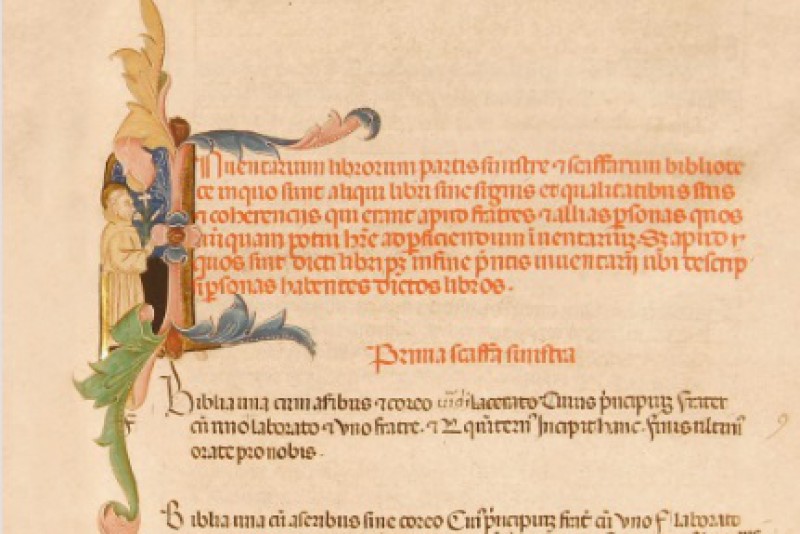 Inuentarium librorum partis sinistre ⁊ sciffarum bibliote
ce in quo sunt aliqui libri sine signis et qualitatibus suis
⁊ coherenciis qui erant apud fratres ⁊ allias personas quos
nūquam potui hr̄e ad perficiendum inuentariuȝ. Sȝ apud
quos sint dicti libri in fine p̄ntis inuentarij ubi descrip
personas habentes dictos libros.
Prima scaffa sinistra
Biblia una cum asibus ⁊ coreo uiridi lacerato Cuius p̄ncipiuȝ Frater
cū uno laborato ⁊ uno fratre. ⁊ quīterni Incipit hanc. finis ultimi
orate pro nobis.
Biblia una cū aseribus sine coreo Cuiꝰ p̄ncipiuȝ frat̄ cū uno f laborato